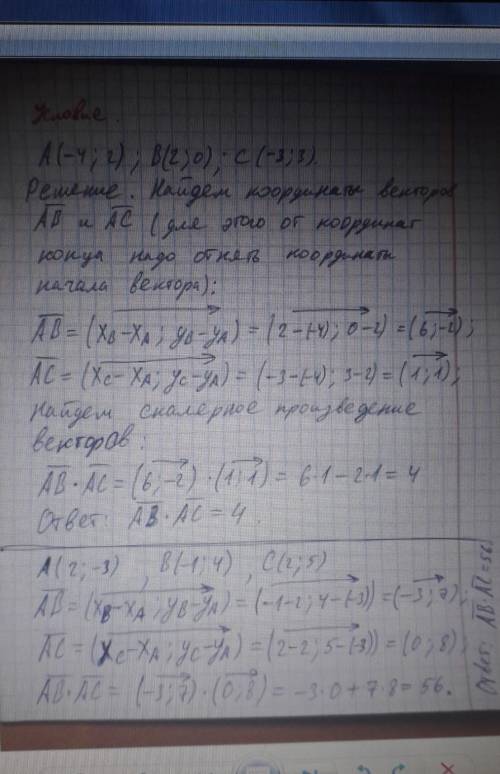 Условие.
A(-4; 2); B(2; 0); C(-3; 3).
Решение. Найдем координаты векторов
AB и AC (для этого от координат
конца надо отнять координаты
начала вектора):
AB = (xB-xA; yB-yA) = (2-(-4); 0-2) = (6; -2);
AC = (xC-xA; yC-yA) = (-3-(-4); 3-2) = (1; 1);
Найдем скалерное произведение
векторов:
AB · AC = (6; -2) · (1; 1) = 6·1-2·1 = 4
Ответ: AB · AC = 4.
A(2; -3) , B(-1; 4) , C(2; 5)
AB = (xB-xA; yB-yA) = (-1-2; 4-(-3)) = (-3; 7);
AC = (xC-xA; yC-yA) = (2-2; 5-(-3)) = (0; 8);
AB · AC = (-3; 7) · (0; 8) = -3·0+7·8 = 56.
Ответ: AB·AC = 56.